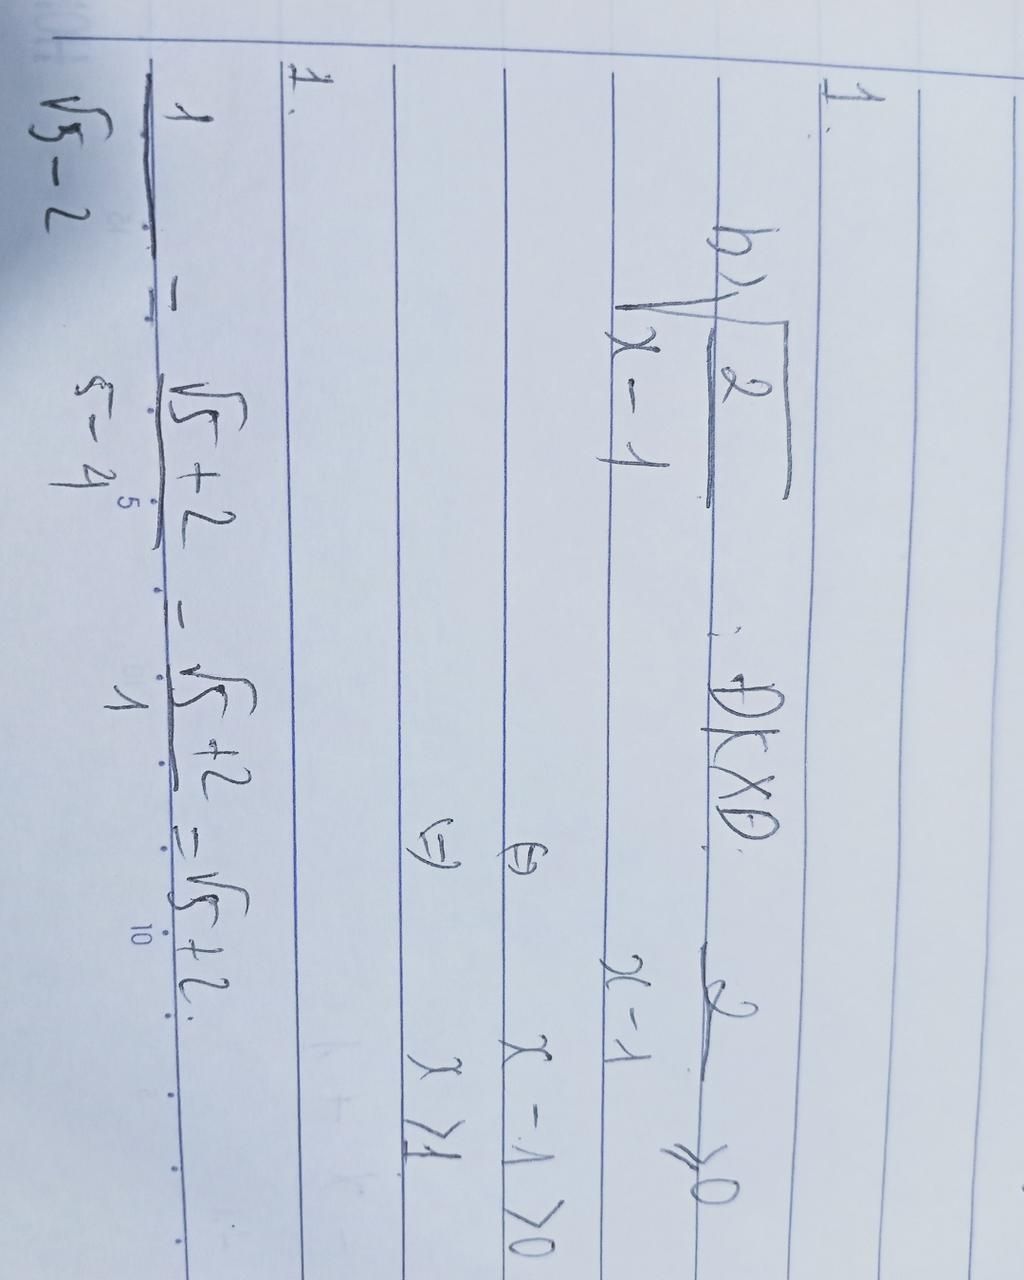 1.
b) √(2/(x - 1)) : ĐKXĐ. 2/(x - 1) ⩾ 0
⇔ x - 1 > 0
⇔ x > 1
1.
1/(√5 - 2) = (√5 + 2)/(5 - 4) = (√5 + 2)/1 = √5 + 2.
5 10